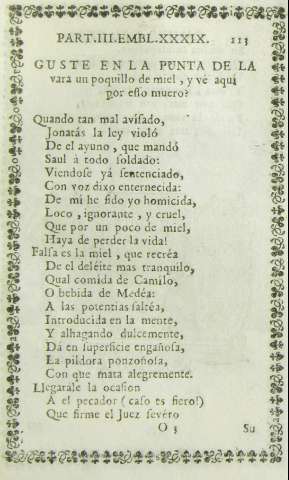 PART.III.EMBL.XXXIX. 113
GUSTE EN LA PUNTA DE LA
vara un poquillo de miel, y vé aqui
por eſſo muero?
Quando tan mal aviſado,
Jonatás la ley violó
De el ayuno, que mandó
Saul à todo ſoldado:
Viendoſe yá ſentenciado,
Con voz dixo enternecida:
De mi he ſido yo homicida,
Loco, ignorante, y cruel,
Que por un poco de miel,
Haya de perder la vida!
Falſa es la miel, que recréa
De el deléite mas tranquilo,
Qual comida de Camilo,
O bebida de Medéa:
A las potencias ſaltéa,
Introducida en la mente,
Y alhagando dulcemente,
Dá en ſuperficie engañoſa,
La pildora ponzoñoſa,
Con que mata alegremente.
Llegarale la ocaſion
A el pecador (caſo es fiero!)
Que firme el Juez ſevéro
O 3 Su